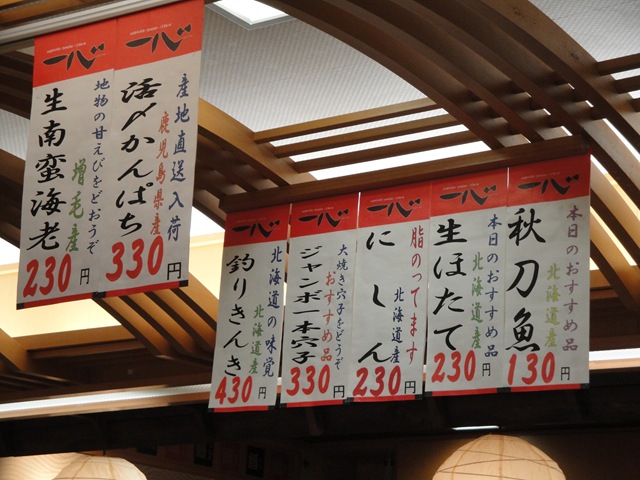 一心
産地直送入荷
鹿児島県産
活〆かんぱち
330円
一心
地物の甘えびをどおうぞ
増毛産
生南蛮海老
230円
一心
本日のおすすめ品
北海道産
秋刀魚
130円
一心
本日のおすすめ品
北海道産
生ほたて
230円
一心
脂のってます
北海道産
にしん
230円
一心
大焼き穴子をどうぞ
おすすめ品
ジャンボ一本穴子
330円
一心
北海道の味覚
北海道産
釣りきんき
430円